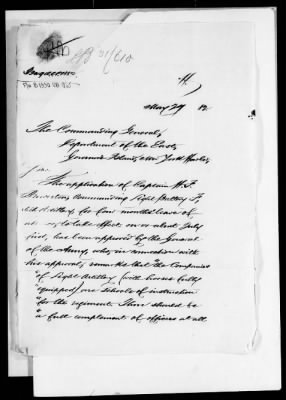 H.
May 29 12.
The Commanding General,
Department of the East,
Governor's Island, New York Harbor.
Sir:
The application of Captain
Commanding Light Battery F,
Artillery for four months leave of
to take effect on or about July
has been approved by the General
of the Army, who, in connection with
his approval, remarks that "the Companies
"of Light Artillery (with horses fully
"equipped) are schools of instruction
"for the regiment. There should be
"a full complement of officers at all